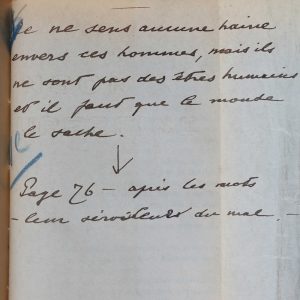 Je ne sens aucune haine
envers ces hommes, mais ils
ne sont pas des êtres humains
et il faut que le monde
le sache.
Page 76 — après les mots
— leur du mal. —